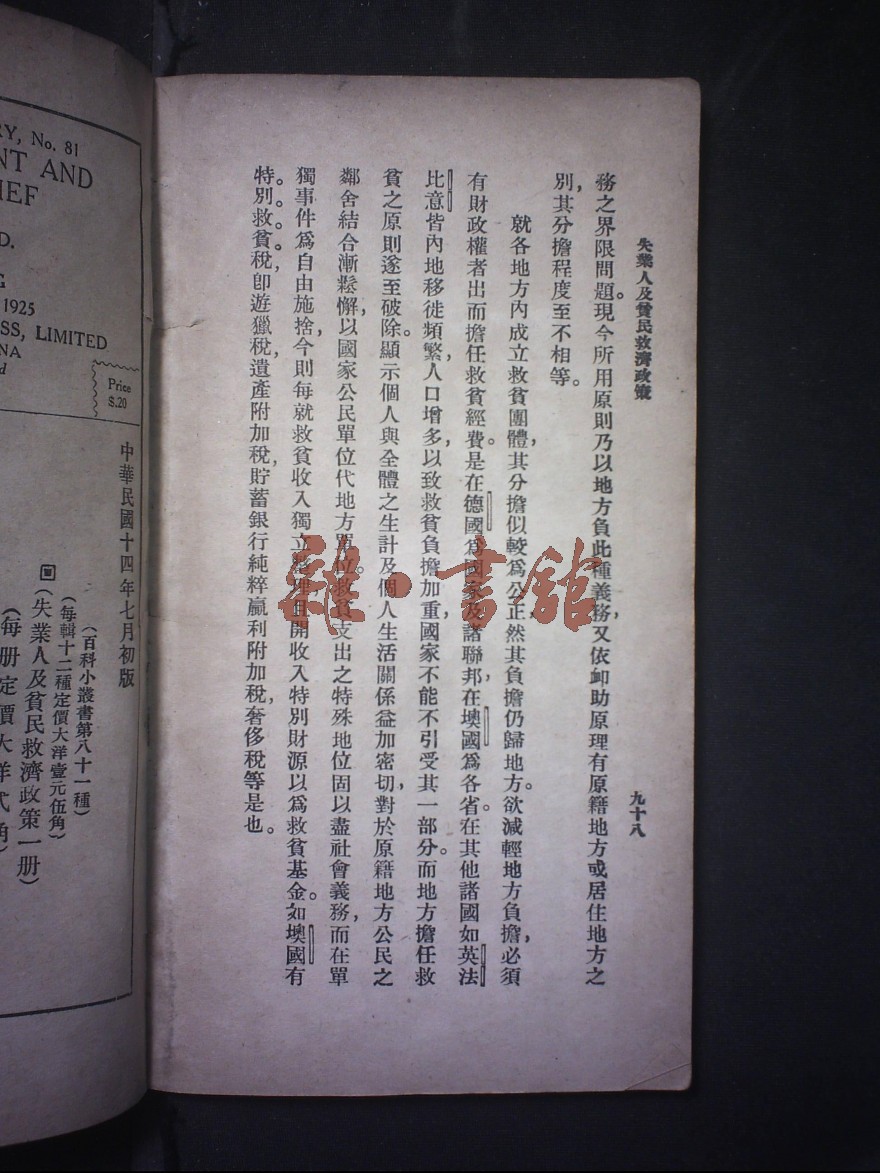 失業人及貧民救濟政策
九十八
務之界限問題。現今所用原則乃以地方負此種義務,又依卹助原理有原籍地方或居住地方之
別,其分擔程度至不相等。
就各地方內成立救貧團體,其分擔似較爲公正,然其負擔仍歸地方。欲減輕地方負擔,必須
有財政權者出而擔任救貧經費。是在德國爲國家及諸聯邦,在墺國爲各省。在其他諸國如英法
比意皆內地移徙頻繁,人口增多,以致救貧負擔加重,國家不能不引受其一部分。而地方擔任救
貧之原則遂至破除。顯示個人與全體之生計及個人生活關係益加密切,對於原籍地方公民之
鄰舍結合漸鬆懈,以國家公民單位代地方單位。救貧支出之特殊地位固以盡社會義務,而在單
獨事件爲自由施捨,今則每就救貧收入獨立整理且開收入特別財源以爲救貧基金。如墺國有
特別救貧稅,卽遊獵稅,遺產附加稅,貯蓄銀行純粹贏利附加稅,奢侈稅等是也。
雜·書館
RY, No. 81
NT AND
IEF
D.
G
1925
SS, LIMITED
NA
d
Price
$.20
中華民國十四年七月初版
(百科小叢書第八十一種)
(每輯十二種定價大洋壹元伍角)
(失業人及貧民救濟政策一册)
(每册定價大洋弍角)